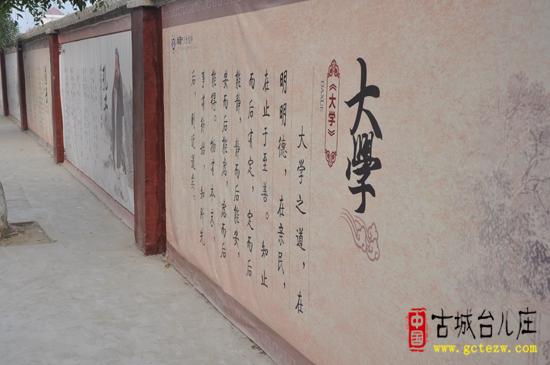 大學
《大学》
DAXUE
大学之道，在
明明德，在亲民，
在止于至善。知止
而后有定，定而后
能静，静而后能安，
安而后能虑，虑而后
能得。物有本末，
事有终始，知所先
后，则近道矣。
中国
古城台儿庄
www.gctezw.com